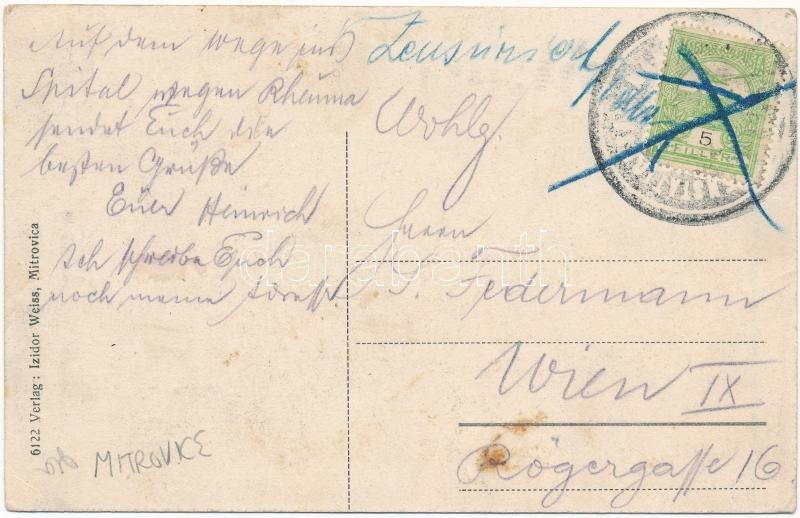 Auf dem wege ins
Spital wegen Rheuma
sendet Euch die
besten Grüße
Euer Heinrich
Ich schreibe Euch
noch meine Adresse.
Zensuriert
5
FILLER
Wohlg.
Herrn
S. Federmann
Wien IX
Rögergasse 16
6122 Verlag: Izidor Weiss, Mitrovica
MITROVKE
darabanth